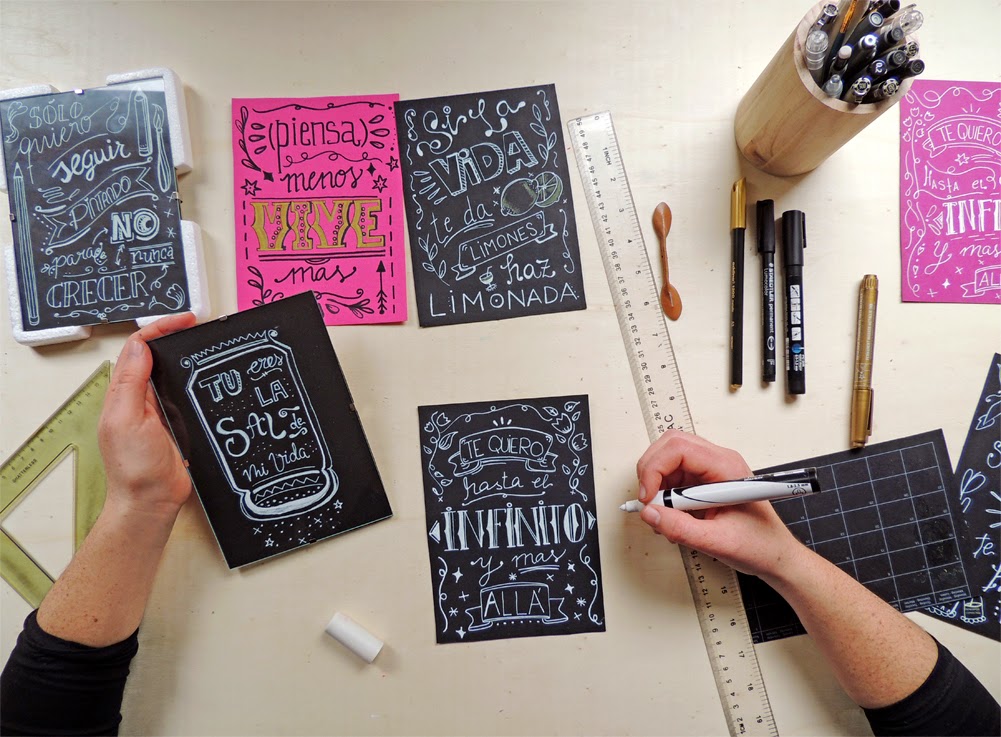 SÓLO
quiero
seguir
PINTANDO
para
NO
nunca
CRECER
(piensa)
menos
VIVE
mas
Si La
VIDA
te da
LIMONES
haz
LIMONADA
TU eres
LA
SAL de
mi vida
TE QUIERO
hasta el
INFINITO
y mas
ALLÁ
TE QUIERO
HASTA EL
INFI
Y mas
ALL